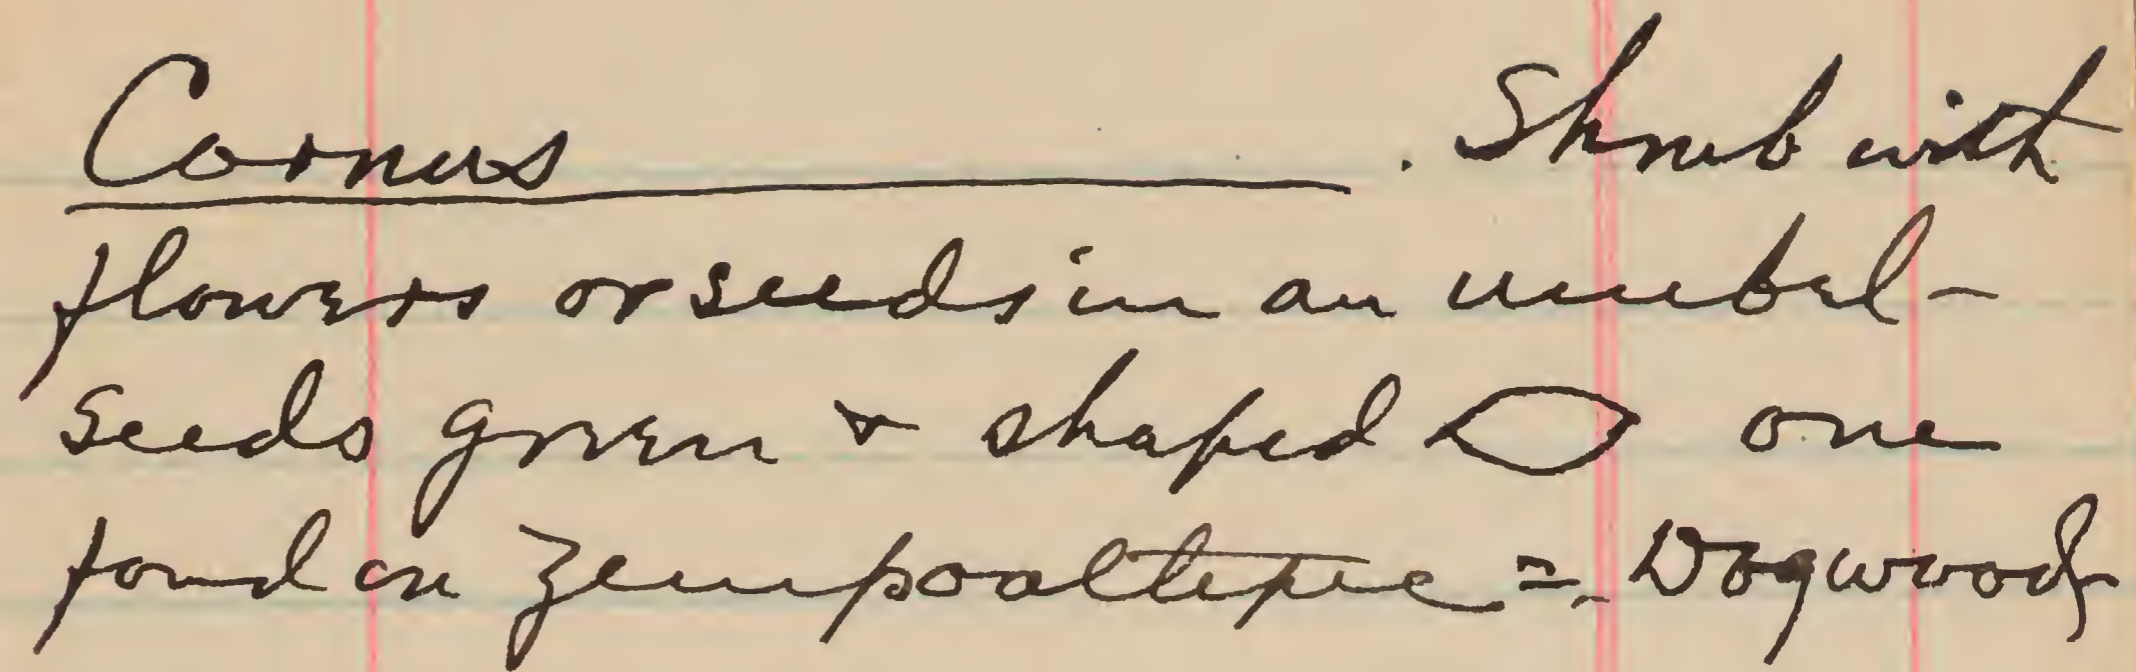 Cornus . Shrub with
flowers or seeds in an umbel -
seeds green & shaped one
found on Zempoaltepec = Dogwood